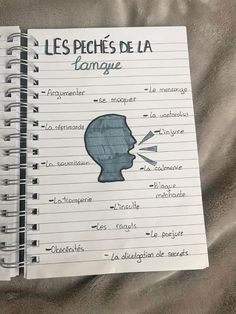 LES PECHÉS DE LA
langue
- Argumenter
- Le mensonge
- se moquer
- La vantardise
- La réprimande
- L'injure
- La soumission
- La calomnie
- Blague méchante
- La tromperie
- L'insulte
- Les ragots
- Le parjure
- Obscénités
- La divulgation de secrets